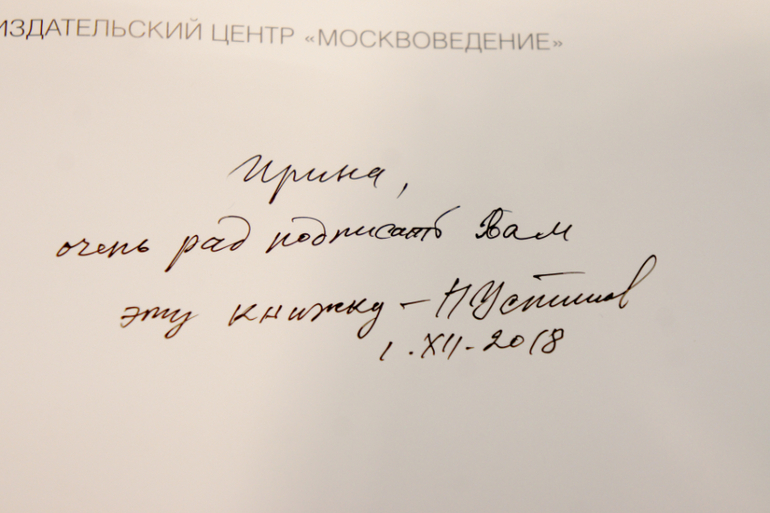 ИЗДАТЕЛЬСКИЙ ЦЕНТР «МОСКВОВЕДЕНИЕ»
Ирина,
очень рад подписать Вам
эту книжку – НУстинов
1.XII-2018